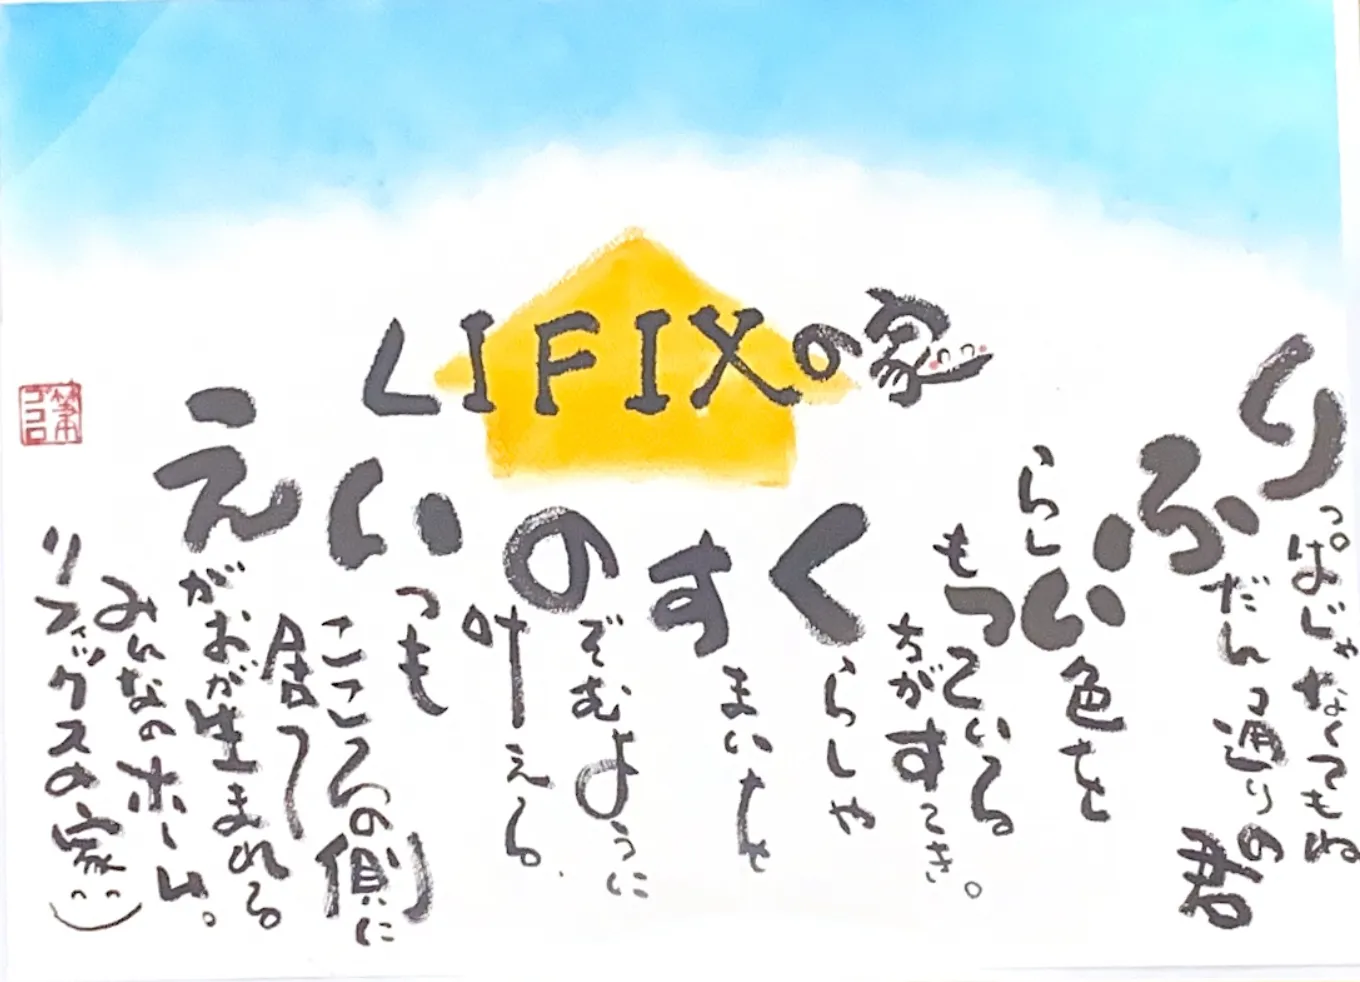 LIFIXの家
りっぱじゃなくてもね
ふだん通りの君
らしい色を
もっている
方がすてき。
くらしや
すまいを
のぞむように
叶える.
いつも
こころの側に
居て
えがおが生まれる
みんなのホーム。
リフィックスの家
筆ココロ